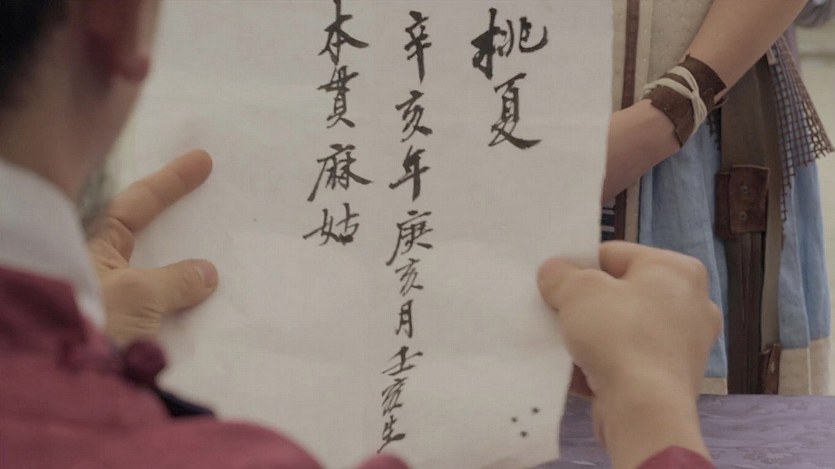 桃夏
辛亥年庚亥月壬亥生
本貫麻姑